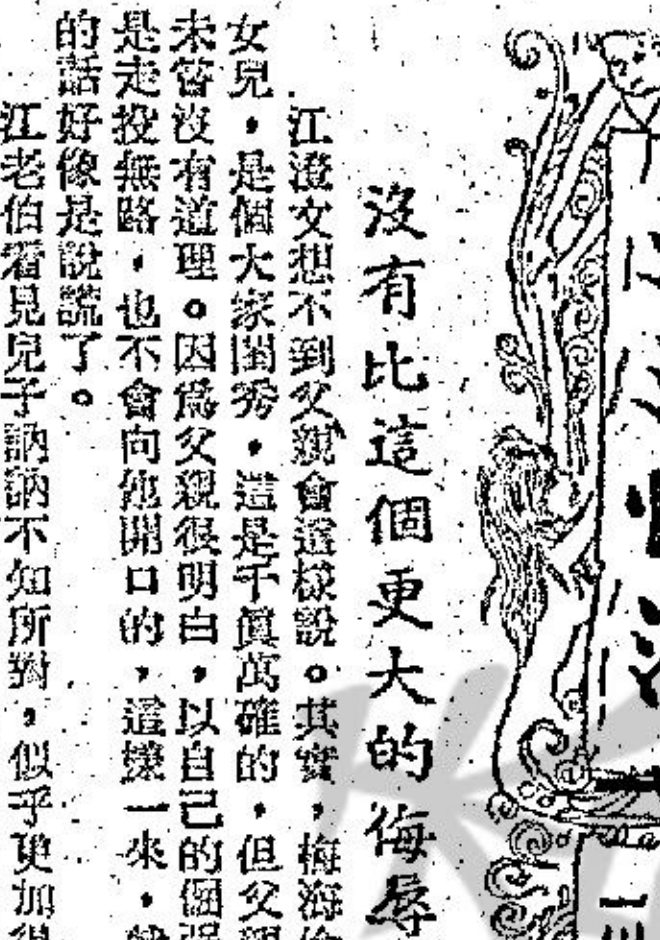 沒有比這個更大的侮辱
江澄文想不到父親會這樣說。其實，梅海
女兒，是個大家閨秀，這是千眞萬確的，但父親
未嘗沒有道理。因爲父親很明白，以自己的倔强
是走投無路，也不會向他開口的，這樣一來，
的話好像是說謊了。
江老伯看見兒子訥訥不知所對，似乎更加得